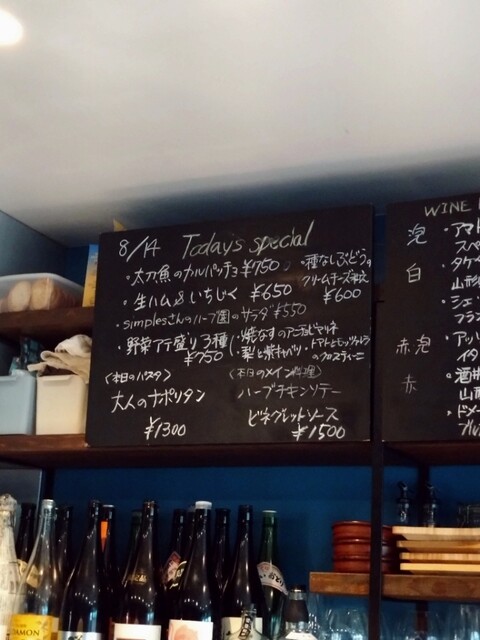 8/14 Todays special
・太刀魚のカルパッチョ ¥750
・種なしぶどうの
クリームチーズ和え
¥600
・生ハム&いちじく ¥650
simplesさんのハーブ園のサラダ ¥550
・野菜アテ盛り3種
¥750
・焼なすのアンチョビマリネ
・梨と紫キャベツ
・トマトとモッツァレラ
のクロスティーニ
〈本日のパスタ〉
大人のナポリタン
¥1300
〈本日のメイン料理〉
ハーブチキンソテー
ビネグレットソース
¥1500
WINE
泡
・アマト
スペ
白
・タケ
山形
・シェ
フラン
赤泡
・アッ
イタ
赤
・酒井
山形
・ドメー
ブル
DAMON